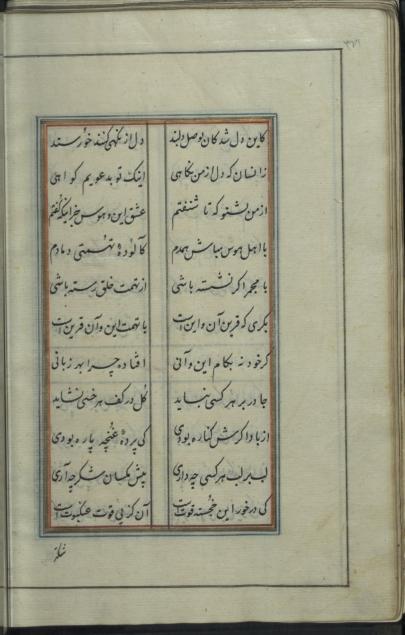 ۳۷۱
کاین دل شدکان بوصل دلبند دل از نگهی کنند خورسند
زانسان که دل از من نگاهی اینک تو بدعویم کواهی
از من بشنو که تا شنفتم عشق این و هوس جز اینکه گفتم
با اهل هوس مباش همدم کالوده تهمتی دمادم
با مجمر اکر نشسته باشی از تهمت خلق رسته باشی
بکری که قرین آن و این است با تهمت این و آن قرین است
کر خود نه بکام این و آنی افتاده چرا بهر زبانی
جا در بر هر کسی نباید کل در کف هر خسی نشاید
از باد اکرش کناره بودی کی پرده غنچه پاره بودی
لب بر لب هر کسی چه داری پیش مکسان شکر چه آری
کی در خور این خجسته قوت است آن کز پی قوت عنکبوت است